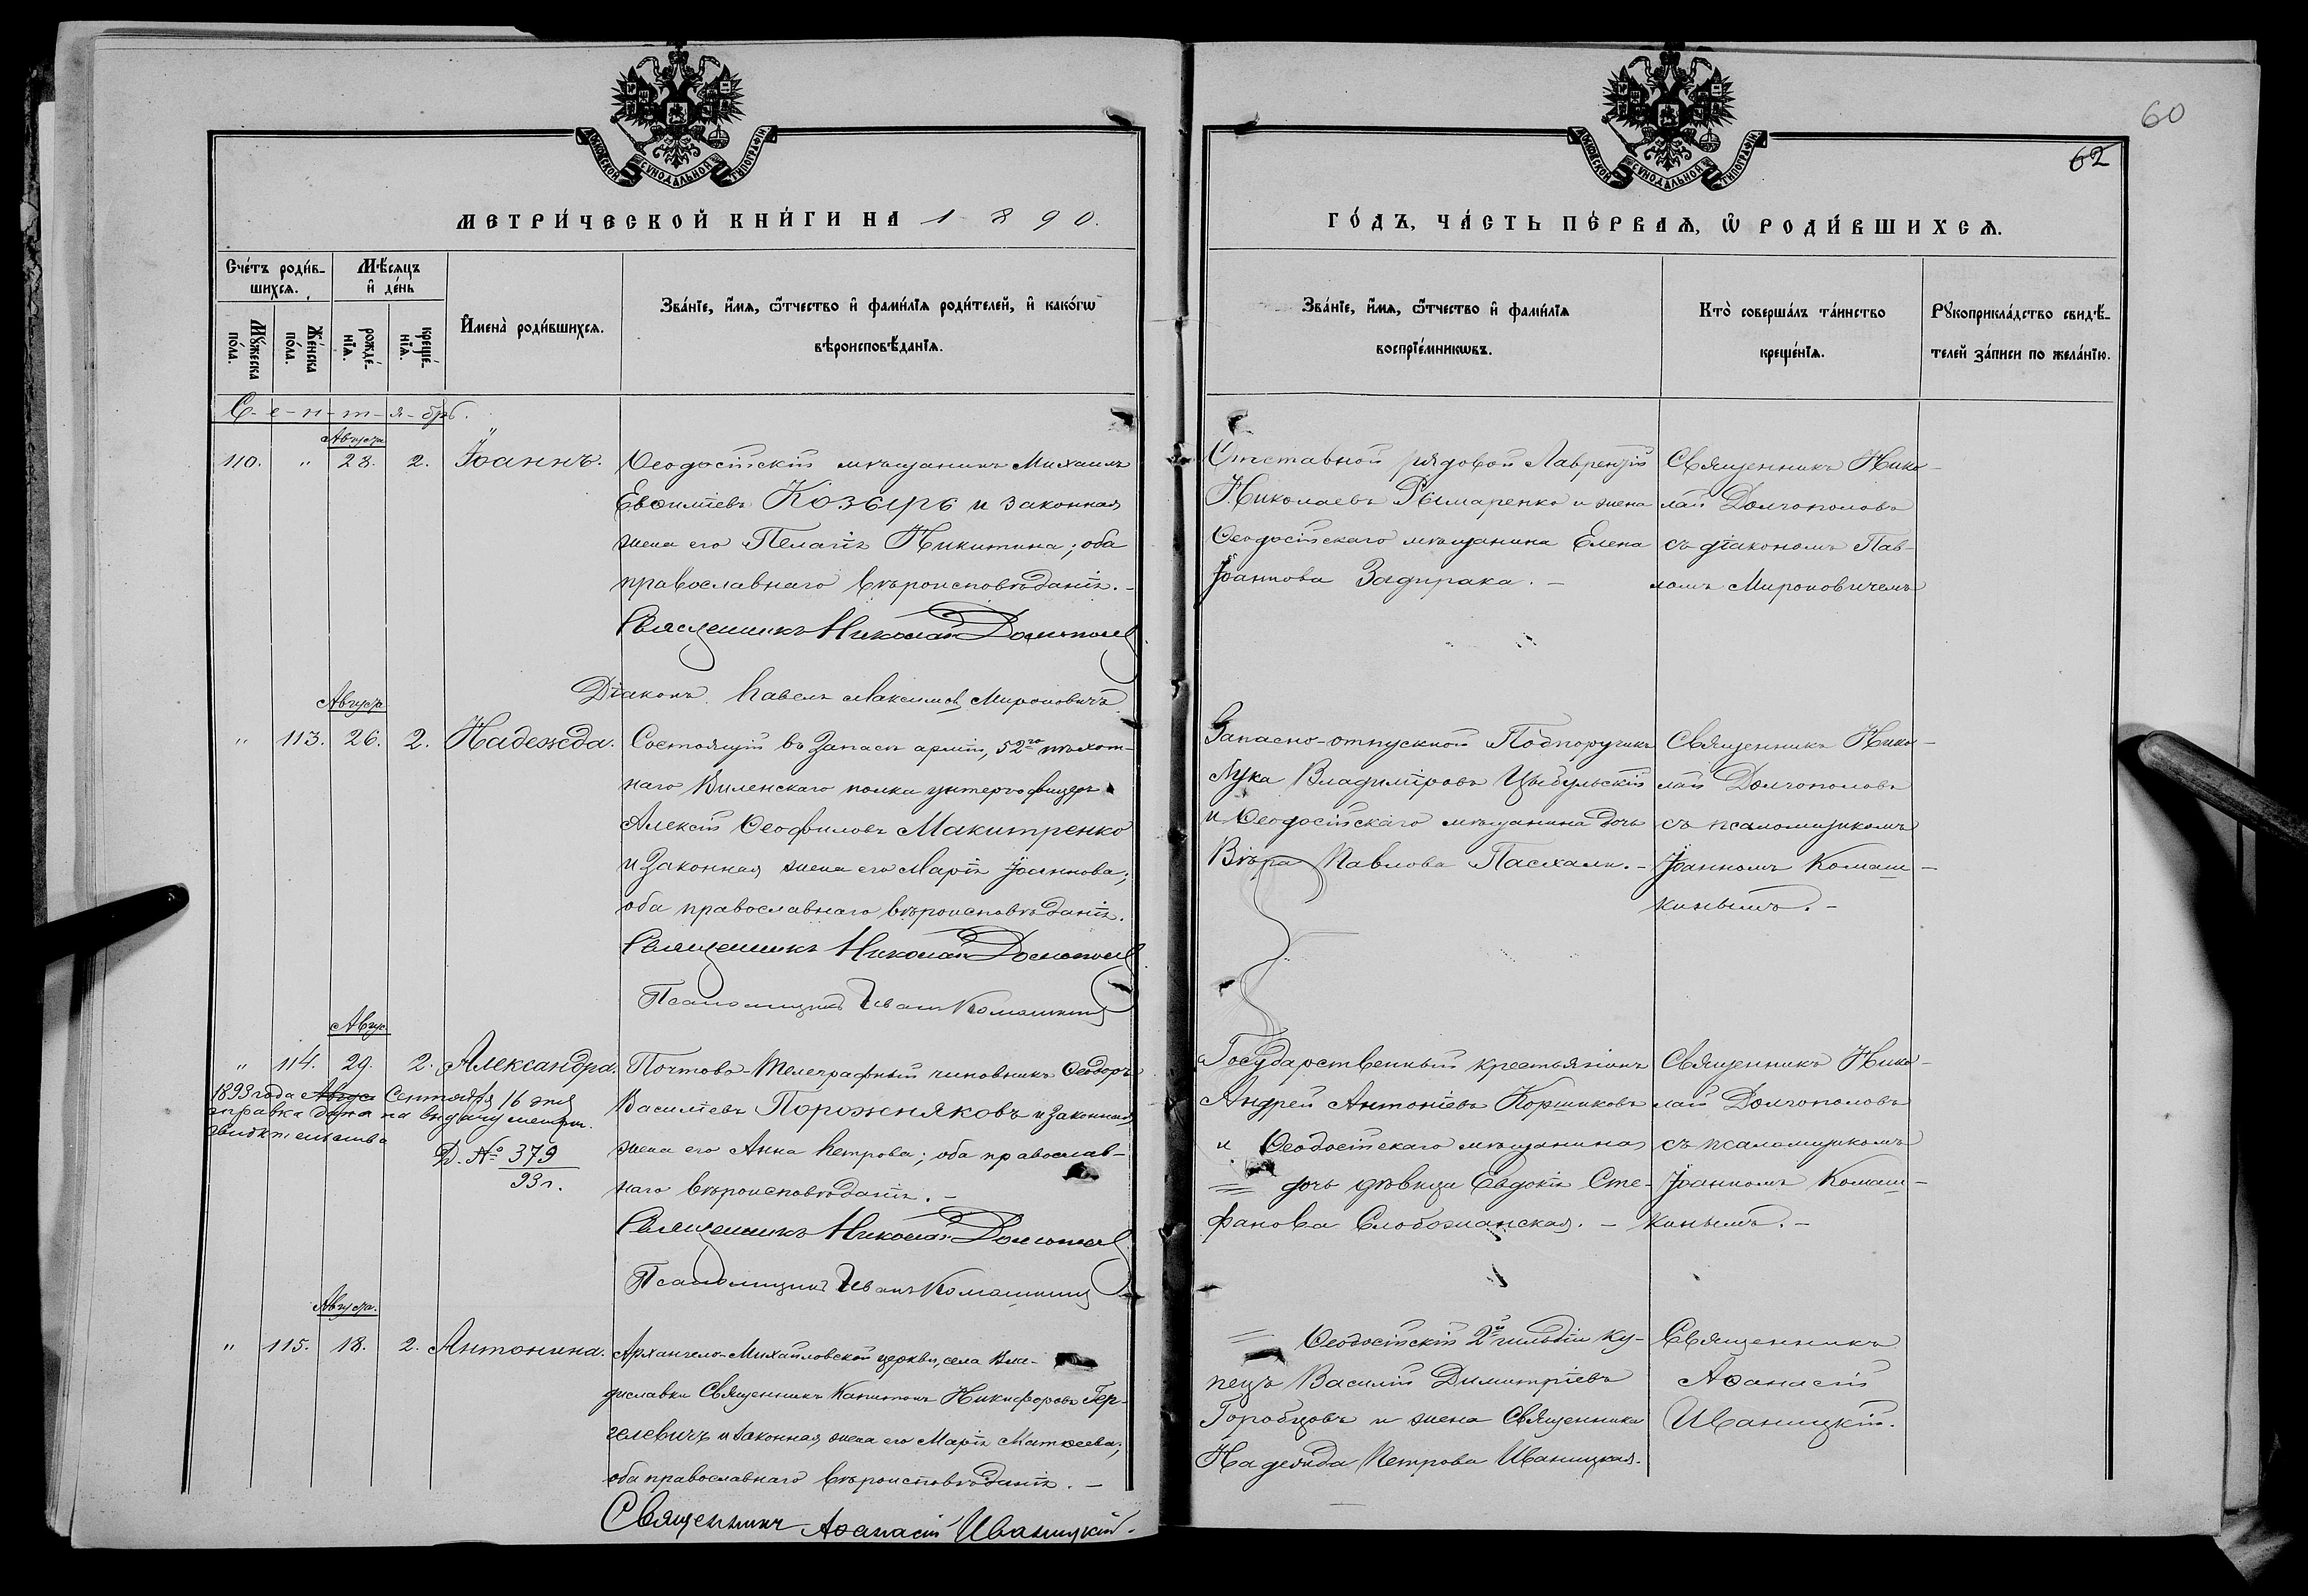 60
62
МОСКОВСКОЙ СѴНОДАЛЬНОЙ ТИПОГРАФІИ
МОСКОВСКОЙ СѴНОДАЛЬНОЙ ТИПОГРАФІИ
МЕТРИ́ЧЕСКОЙ КНИ́ГИ НА 1890.
ГО́ДЪ, ЧА́СТЬ ПЕ́РВАѦ, Ѡ҆ РОДИ́ВШИХСѦ.
Сче́тъ роди́в-
шихсѧ.
Мѣ́сѧцъ
и҆ де́нь
Мꙋ́жеска
по́ла.
Же́нска
по́ла.
рожде́-
нїѧ.
креще́-
нїѧ.
И҆мена̀ роди́вшихсѧ.
Зва́нїе, и҆́мѧ, ѻ҆́тчество и҆ фами́лїѧ роди́телей, и҆ како́гѡ
вѣроисповѣ́данїѧ.
Зва́нїе, и҆́мѧ, ѻ҆́тчество и҆ фами́лїѧ
воспрїе́мникѡвъ.
Кто̀ соверша́лъ та́инство
креще́нїѧ.
Рꙋкоприкла́дство свидѣ́-
телей за́писи по жела́нїю.
С-е-н-т-я-брь.
Августа
110. " 28. 2. Іоаннъ.
Ѳеодосійскій мѣщанинъ Михаилъ
Евѳиміевъ Козырь и законная
жена его Пелагія Никитина; оба
православнаго вѣроисповѣданія. -
Священникъ Николай Долгополовъ
Діаконъ Павелъ Максимов. Мироновичъ
Отставной рядовой Лаврентій
Николаевъ Рымаренко и жена
Ѳеодосійскаго мѣщанина Елена
Іоаннова Задирака. -
Священникъ Нико-
лай Долгополовъ
съ діакономъ Пав-
ломъ Мироновичемъ
Августа
" 113. 26. 2. Надежда.
Состоящій въ Запасѣ арміи, 52го пѣхот-
наго Виленскаго полка унтеръ-офицеръ
Алексій Ѳеофиловъ Макитренко
и Законная жена его Марія Іоаннова;
оба православнаго вѣроисповѣданія.
Священникъ Николай Долгополовъ
Псаломщикъ Иванъ Комашкинъ
Запасно-отпускной Подпоручикъ
Лука Владиміровъ Цыбульскій
и Ѳеодосійскаго мѣщанина дочь
Вѣра Павлова Пасхали. -
Священникъ Нико-
лай Долгополовъ
съ псаломщикомъ
Іоанномъ Комаш-
кинымъ. -
Авгус.
" 114. 29. 2. Александра.
1893 года Август Сентября 16 дня
справка дана на выдачу метри.
свидѣтельства
Д. № 379
93 г.
Почтово-Телеграфный чиновникъ Ѳеодоръ
Василіевъ Порожняковъ и Законная
жена его Анна Петрова; оба православ-
наго вѣроисповѣданія. -
Священникъ Николай Долгополовъ
Псаломщикъ Иванъ Комашкинъ
Государственный крестьянинъ
Андрей Антоніевъ Коршиковъ
и Ѳеодосійскаго мѣщанина
= дочь дѣвица Евдокія Сте-
фанова Слобожанская. -
Священникъ Нико-
лай Долгополовъ
съ псаломщикомъ
Іоанномъ Комаш-
кинымъ. -
Августа.
" 115. 18. 2. Антонина.
Архангело-Михайловской церкви, села Вла-
диславки Священникъ Капитонъ Никифоровъ Гер-
гелевичъ и законная жена его Марія Матѳеева;
оба православнаго вѣроисповѣданія. -
Священникъ Аѳанасій Иваницкій.
= Ѳеодосійскій 2й гильдіи ку-
пецъ Василій Димитріевъ
Горобцовъ и жена Священника
Надежда Петрова Иваницкая.
Священникъ
Аѳанасій
Иваницкій.